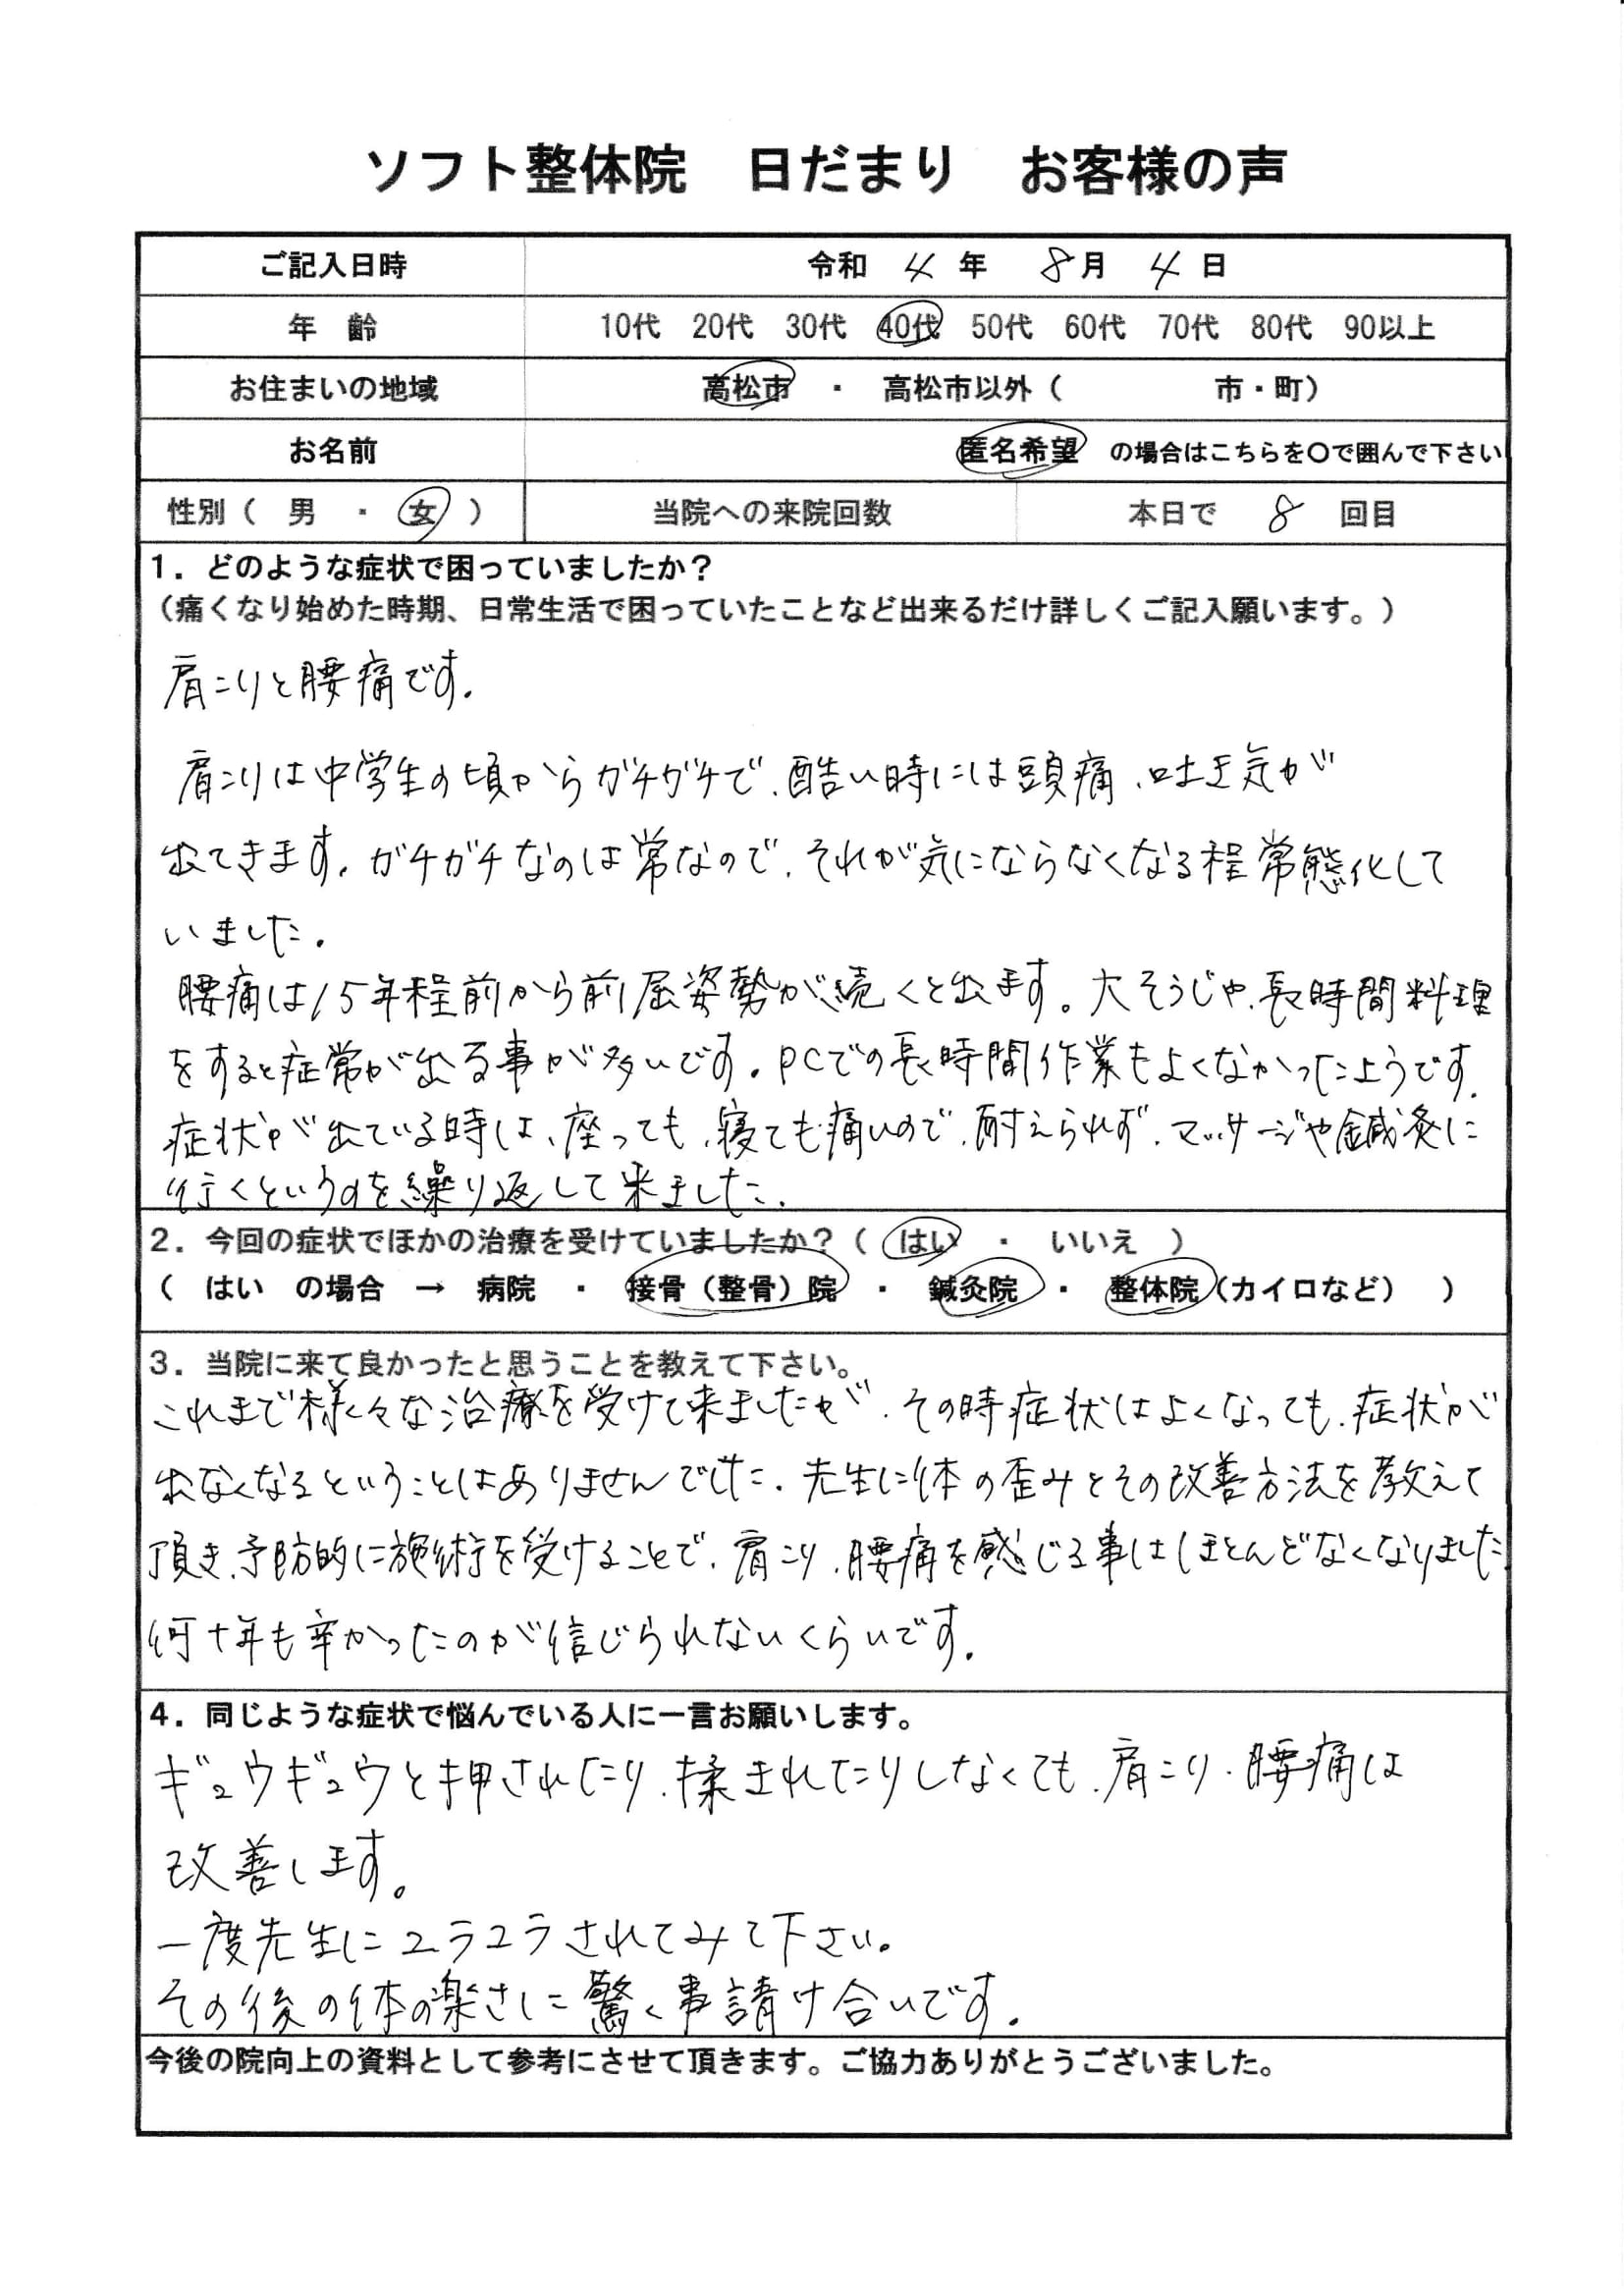 ソフト整体院 日だまり お客様の声
ご記入日時 令和 4 年 8月 4 日
年 齢 10代 20代 30代 40代 50代 60代 70代 80代 90以上
お住まいの地域 高松市 ・ 高松市以外（ 市・町）
お名前 匿名希望 の場合はこちらを〇で囲んで下さい
性別（ 男 ・ 女 ） 当院への来院回数 本日で 8 回目
1．どのような症状で困っていましたか？
（痛くなり始めた時期、日常生活で困っていたことなど出来るだけ詳しくご記入願います。）
肩こりと腰痛です.
肩こりは中学生の頃からガチガチで、酷い時には頭痛、吐き気が
出てきます。ガチガチなのは常なので、それが気にならなくなる程常態化して
いました.
腰痛は15年程前から前屈姿勢が続くと出ます。大そうじや、長時間料理
をすると症常が出る事が多いです。PCでの長時間作業もよくなかったようです.
症状が出ている時は、座っても、寝ても痛いので、耐えられず、マッサージや鍼灸に
行くというのを繰り返して来ました.
2．今回の症状でほかの治療を受けていましたか？（ はい ・ いいえ ）
（ はい の場合 → 病院 ・ 接骨（整骨）院 ・ 鍼灸院 ・ 整体院（カイロなど） ）
3．当院に来て良かったと思うことを教えて下さい。
これまで様々な治療を受けて来ましたが、その時症状はよくなっても、症状が
出なくなるということはありませんでした. 先生に体の歪みとその改善方法を教えて
頂き、予防的に施術を受けることで、肩こり、腰痛を感じる事はほとんどなくなりました.
何十年も辛かったのが信じられないくらいです.
4．同じような症状で悩んでいる人に一言お願いします。
ギュウギュウと押されたり、揉まれたりしなくても、肩こり・腰痛は
改善します。
一度先生にユラユラされてみて下さい。
その後の体の楽さに驚く事請け合いです.
今後の院向上の資料として参考にさせて頂きます。ご協力ありがとうございました。